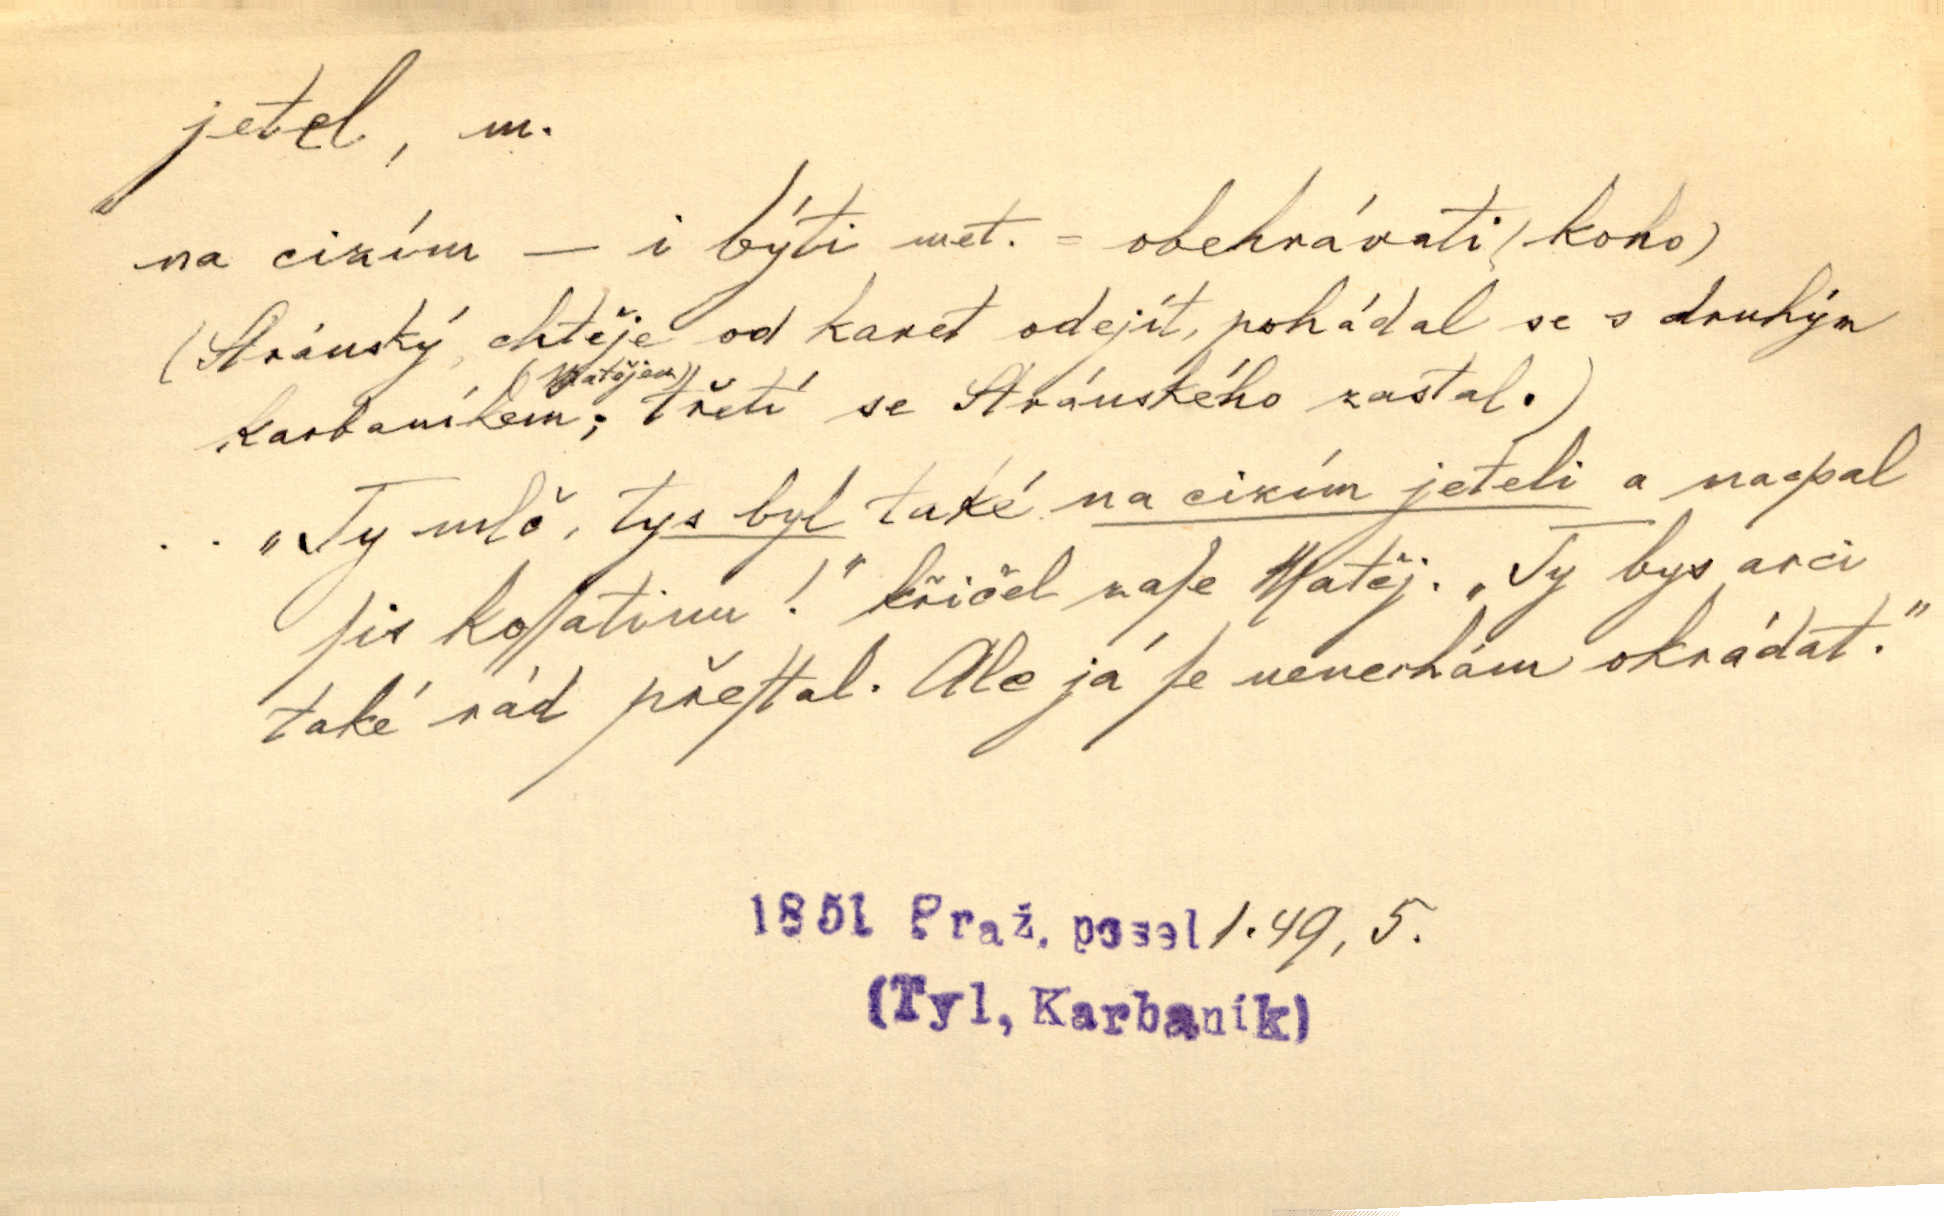 jetel, m.
na cizím — i býti met. = obehrávati (koho)
(Stránský, chtěje od karet odejít, pohádal se s druhým
(Matějem)
karbaníkem; třetí se Stránského zastal.)
. . „Ty mlč, tys byl také na cizím jeteli a nacpal
ſis koſſatinu!" křičel zaſe Matěj. „Ty bys arci
také rád přeſtal. Ale já ſe nenechám okrádat."
1851 Praž. posel 1. 49, 5.
(Tyl, Karbaník)